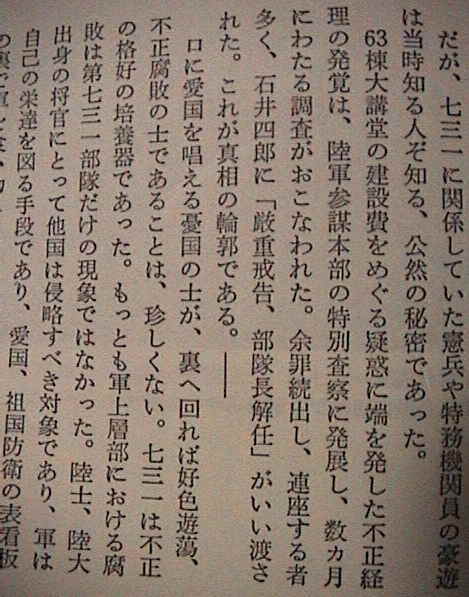 だが、七三一に関係していた憲兵や特務機関員の豪遊
は当時知る人ぞ知る、公然の秘密であった。
63棟大講堂の建設費をめぐる疑惑に端を発した不正経
理の発覚は、陸軍参謀本部の特別査察に発展し、数ヵ月
にわたる調査がおこなわれた。余罪続出し、連座する者
多く、石井四郎に「厳重戒告、部隊長解任」がいい渡さ
れた。これが真相の輪郭である。――
口に愛国を唱える憂国の士が、裏へ回れば好色遊蕩、
不正腐敗の士であることは、珍しくない。七三一は不正
の格好の培養器であった。もっとも軍上層部における腐
敗は第七三一部隊だけの現象ではなかった。陸士、陸大
出身の将官にとって他国は侵略すべき対象であり、軍は
自己の栄達を図る手段であり、愛国、祖国防衛の表看板